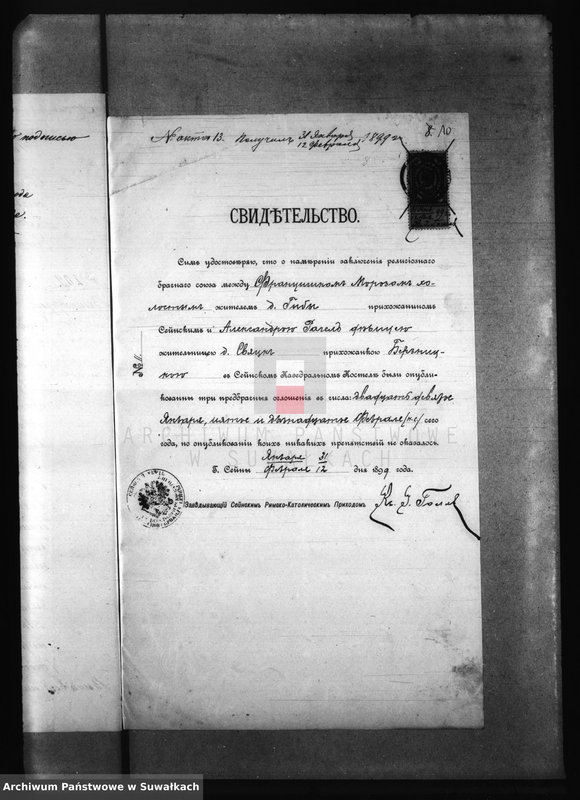 подписью
№ акта 13. Получилъ 31 Января
12 Февраля 1899 г.
СВИДѢТЕЛЬСТВО.
Симъ удостовѣряю, что о намѣреніи заключенія религіознаго
брачнаго союза между Францишкомъ Морозомъ хо-
лостымъ жителемъ д. Гибы прихожаниномъ
Сейнскимъ и Александрою Рагель дѣвицею
жительницею д. прихожанкою Бержниц-
кою въ Сейнскомъ Каѳедральномъ Костелѣ были опубли-
кованы три предбрачныя оглашенія въ числа: двадцать девятое
Января, пятое и двѣнадцатое Февраля (н.с.) сего
года, по опубликованіи коихъ никакихъ препятствій не оказалось.
Января 31
Г. Сейны Февраля 12 дня 1899 года.
№ 11
Завѣдывающій Сейнскимъ Римско-Католическимъ Приходомъ
ARCHIWUM PAŃSTWOWE
W SUWAŁKACH
Archiwum Państwowe w Suwałkach